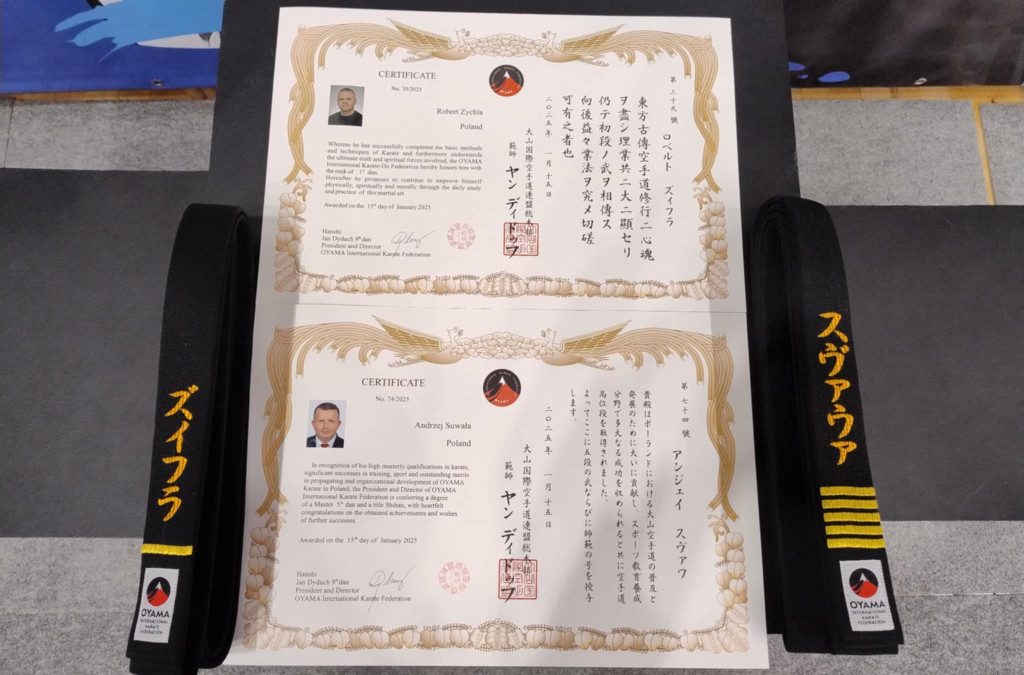 CERTIFICATE
No. 39/2025
Robert Zychla
Poland
Whereas he has successfully completed the basic methods
and techniques of Karate and furthermore understands
the ultimate truth and spiritual forces involved, the OYAMA
International Karate-Do Federation hereby honors him with
the rank of 1st dan.
Hereafter he promises to continue to improve himself
physically, spiritually and morally through the daily study
and practice of this martial art
Awarded on the 15th day of January 2025
Hanshi
Jan Dyduch 9th dan
President and Director
OYAMA International Karate Federation
第三十九號
ロベルト ズィフラ
東方古傳空手道修行ニ心魂
ヲ盡シ理業共ニ大ニ顯セリ
仍テ初段ノ武ヲ相傳ス
向後益々業法ヲ究メ切磋
可有之者也
二〇二五年 一月十五日
大山国際空手道連盟総本部
範師 ヤン ディドゥフ
OYAMA
CERTIFICATE
No. 74/2025
Andrzej Suwała
Poland
In recognition of his high masterly qualifications in karate,
significant successes in training, sport and outstanding merits
in propagating and organizational development of OYAMA
Karate in Poland, the President and Director of OYAMA
International Karate Federation is conferring a degree
of a Master 5th dan and a title Shihan, with heartfelt
congratulations on the obtained achievements and wishes
of further successes.
Awarded on the 15th day of January 2025
Hanshi
Jan Dyduch 9th dan
President and Director
OYAMA International Karate Federation
第七十四號
アンジェイ スヴァワ
貴殿はポーランドにおける大山空手道の普及と
発展のために大いに貢献し、スポーツ教育養成
分野で多大なる成功を収められると共に空手道
高位段を取得されました。
よってここに五段の武ならびに師範の号を授与
します。
二〇二五年 一月十五日
大山国際空手道連盟総本部
範師 ヤン ディドゥフ
ズイフラ
OYAMA
INTERNATIONAL
KARATE
FEDERATION
スヴァウァ
OYAMA
INTERNATIONAL
KARATE
FEDERATION